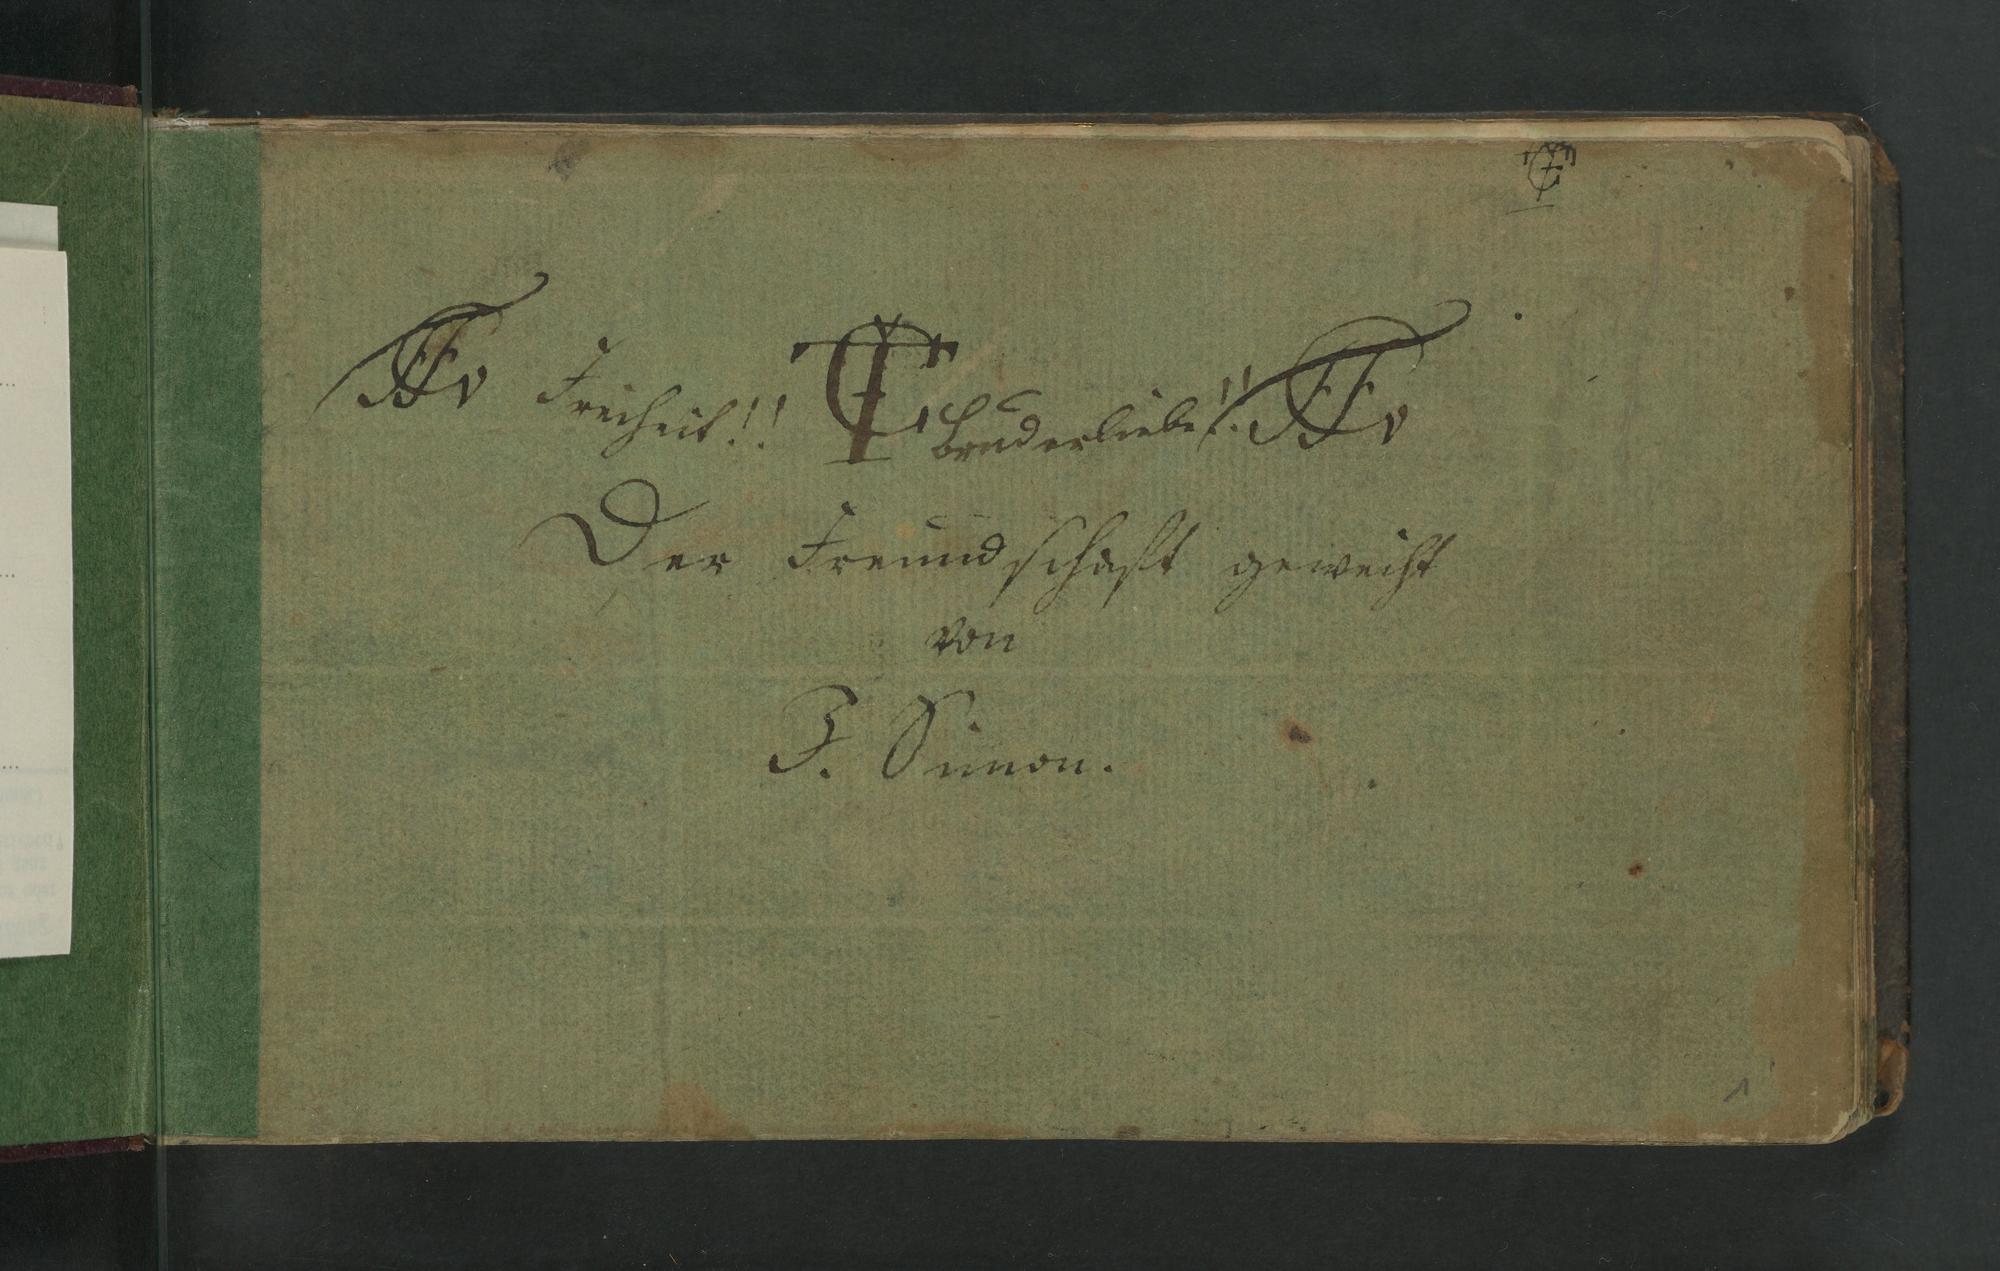 Freiheit!! Bruderliebe!!
Der Freundschaft geweiht
von
F. Simon.
1